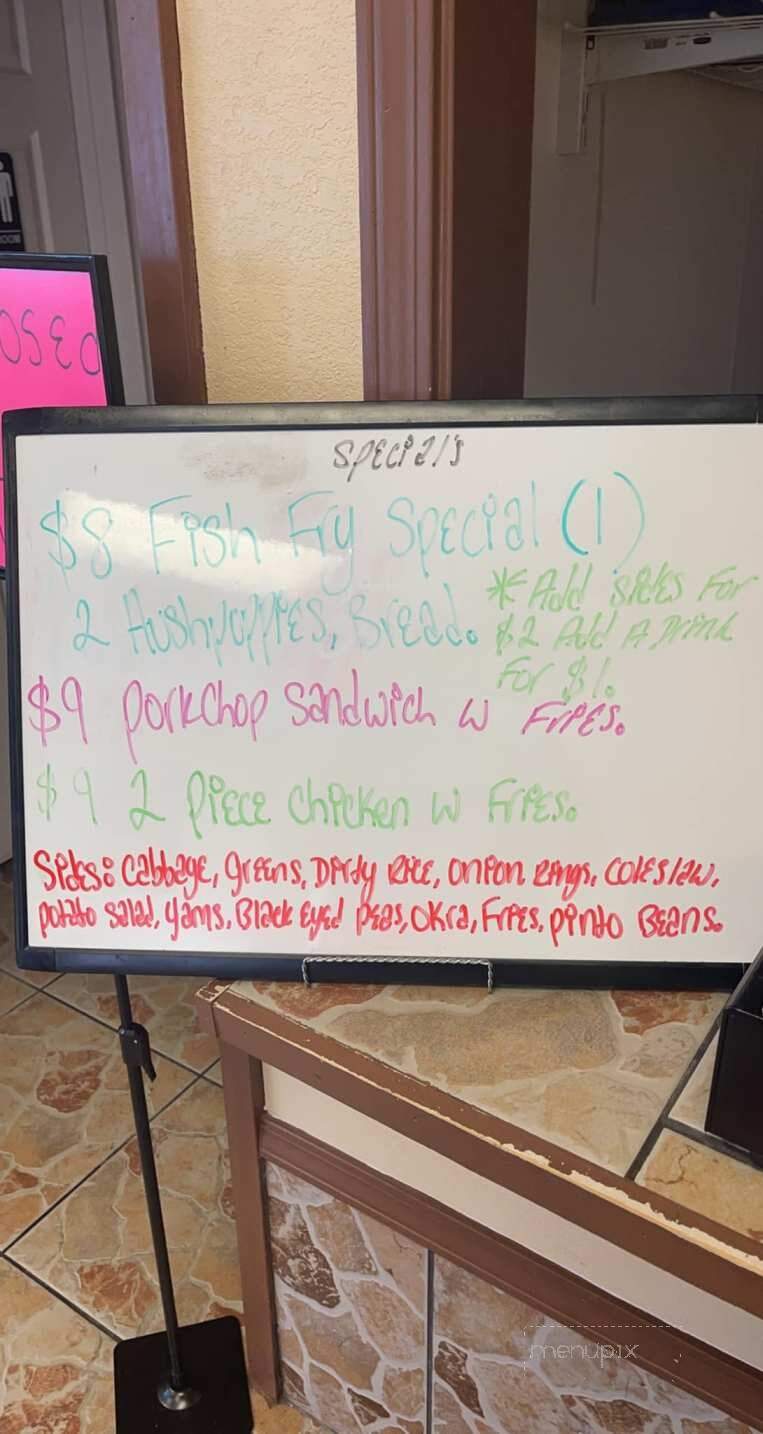 OSED
Special's
$8 Fish Fry Special (1)
2 Hushpuppies, Bread.
* Add sides For
$2 Add A Drink
For $1.
$9 Porkchop Sandwich w Fries.
$9 2 Piece Chicken w Fries.
Sides: Cabbage, greens, Dirty Rice, Onion Rings, Coleslaw,
Potato Salad, Yams, Black Eyed Peas, Okra, Fries, Pinto Beans.
menupix